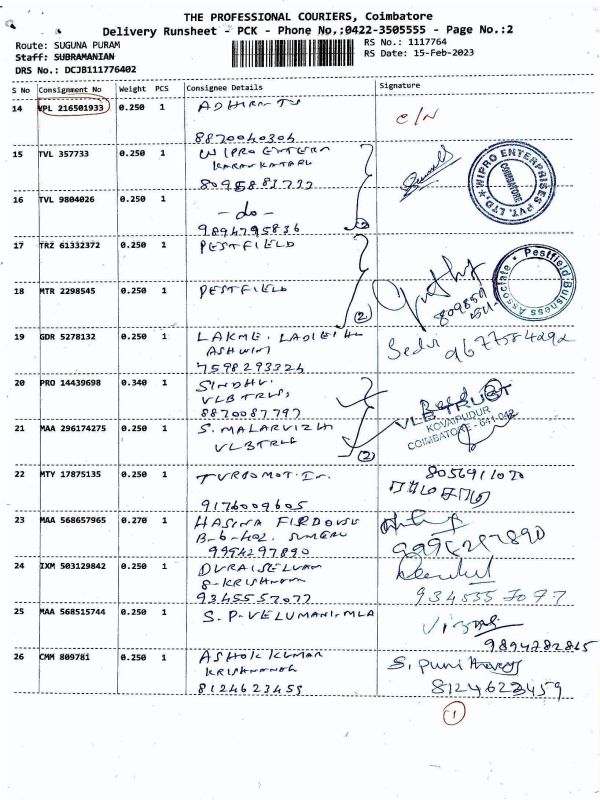 THE PROFESSIONAL COURIERS, Coimbatore
Delivery Runsheet - PCK - Phone No.;0422-3505555 - Page No.:2
Route: SUGUNA PURAM
RS No.: 1117764
Staff: SUBRAMANIAN
RS Date: 15-Feb-2023
DRS No.: DCJB111776402
S No Consignment No Weight PCS Consignee Details Signature
14 VPL 216501933 0.250 1
8870040304
C/N
15 TVL 357733 0.250 1 WIPRO ENTERP
WIPRO ENTERPRISES PVT. LTD.
COIMBATORE
16 TVL 9804026 0.250 1 - do -
9894795836
(2)
17 TRZ 61332372 0.250 1 PESTFIELD
Pestfield Buisness Associate
18 MTR 2298545 0.250 1 PESTFIELD
(2)
19 GDR 5278132 0.250 1 LAKME. LADIES
ASHWINI
7598293324
9677584292
20 PRO 14439698 0.340 1 SINDHU.
VLBTRUS,
8870087797
VLB TRUST
KOVAIPUDUR
COIMBATORE - 641 042
21 MAA 296174275 0.250 1 S. MALARVIZH
VLBTRUS
(2)
22 MTY 17875135 0.250 1 TURBOMOT.
9176009605
8056911070
23 MAA 568657965 0.270 1 HASINA FIRDOUSE
B-6-402. SUMERU
9994297890
24 IXM 503129842 0.250 1 DURAISELVAM
S-KRISHNAM
9345557077
934555 7077
25 MAA 568515744 0.250 1 S.P-VELUMANI-MLA
9894282865
26 CMM 809781 0.250 1 ASHOK KUMAR
8124623459
8124623459
1